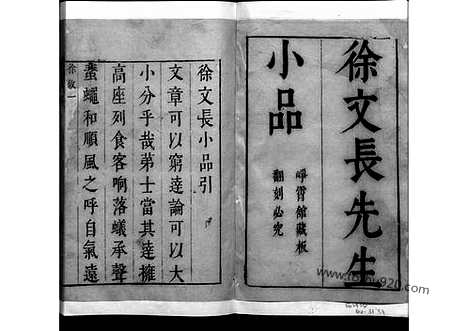 徐文長先生
小品
崢霄館藏板
翻刻必究
徐文長小品引
文章可以窮達論可以大
小分乎哉弟士當其達擁
高座列食客响落蟻承聲
蚉蠅和順風之呼自氣遠
徐敘一